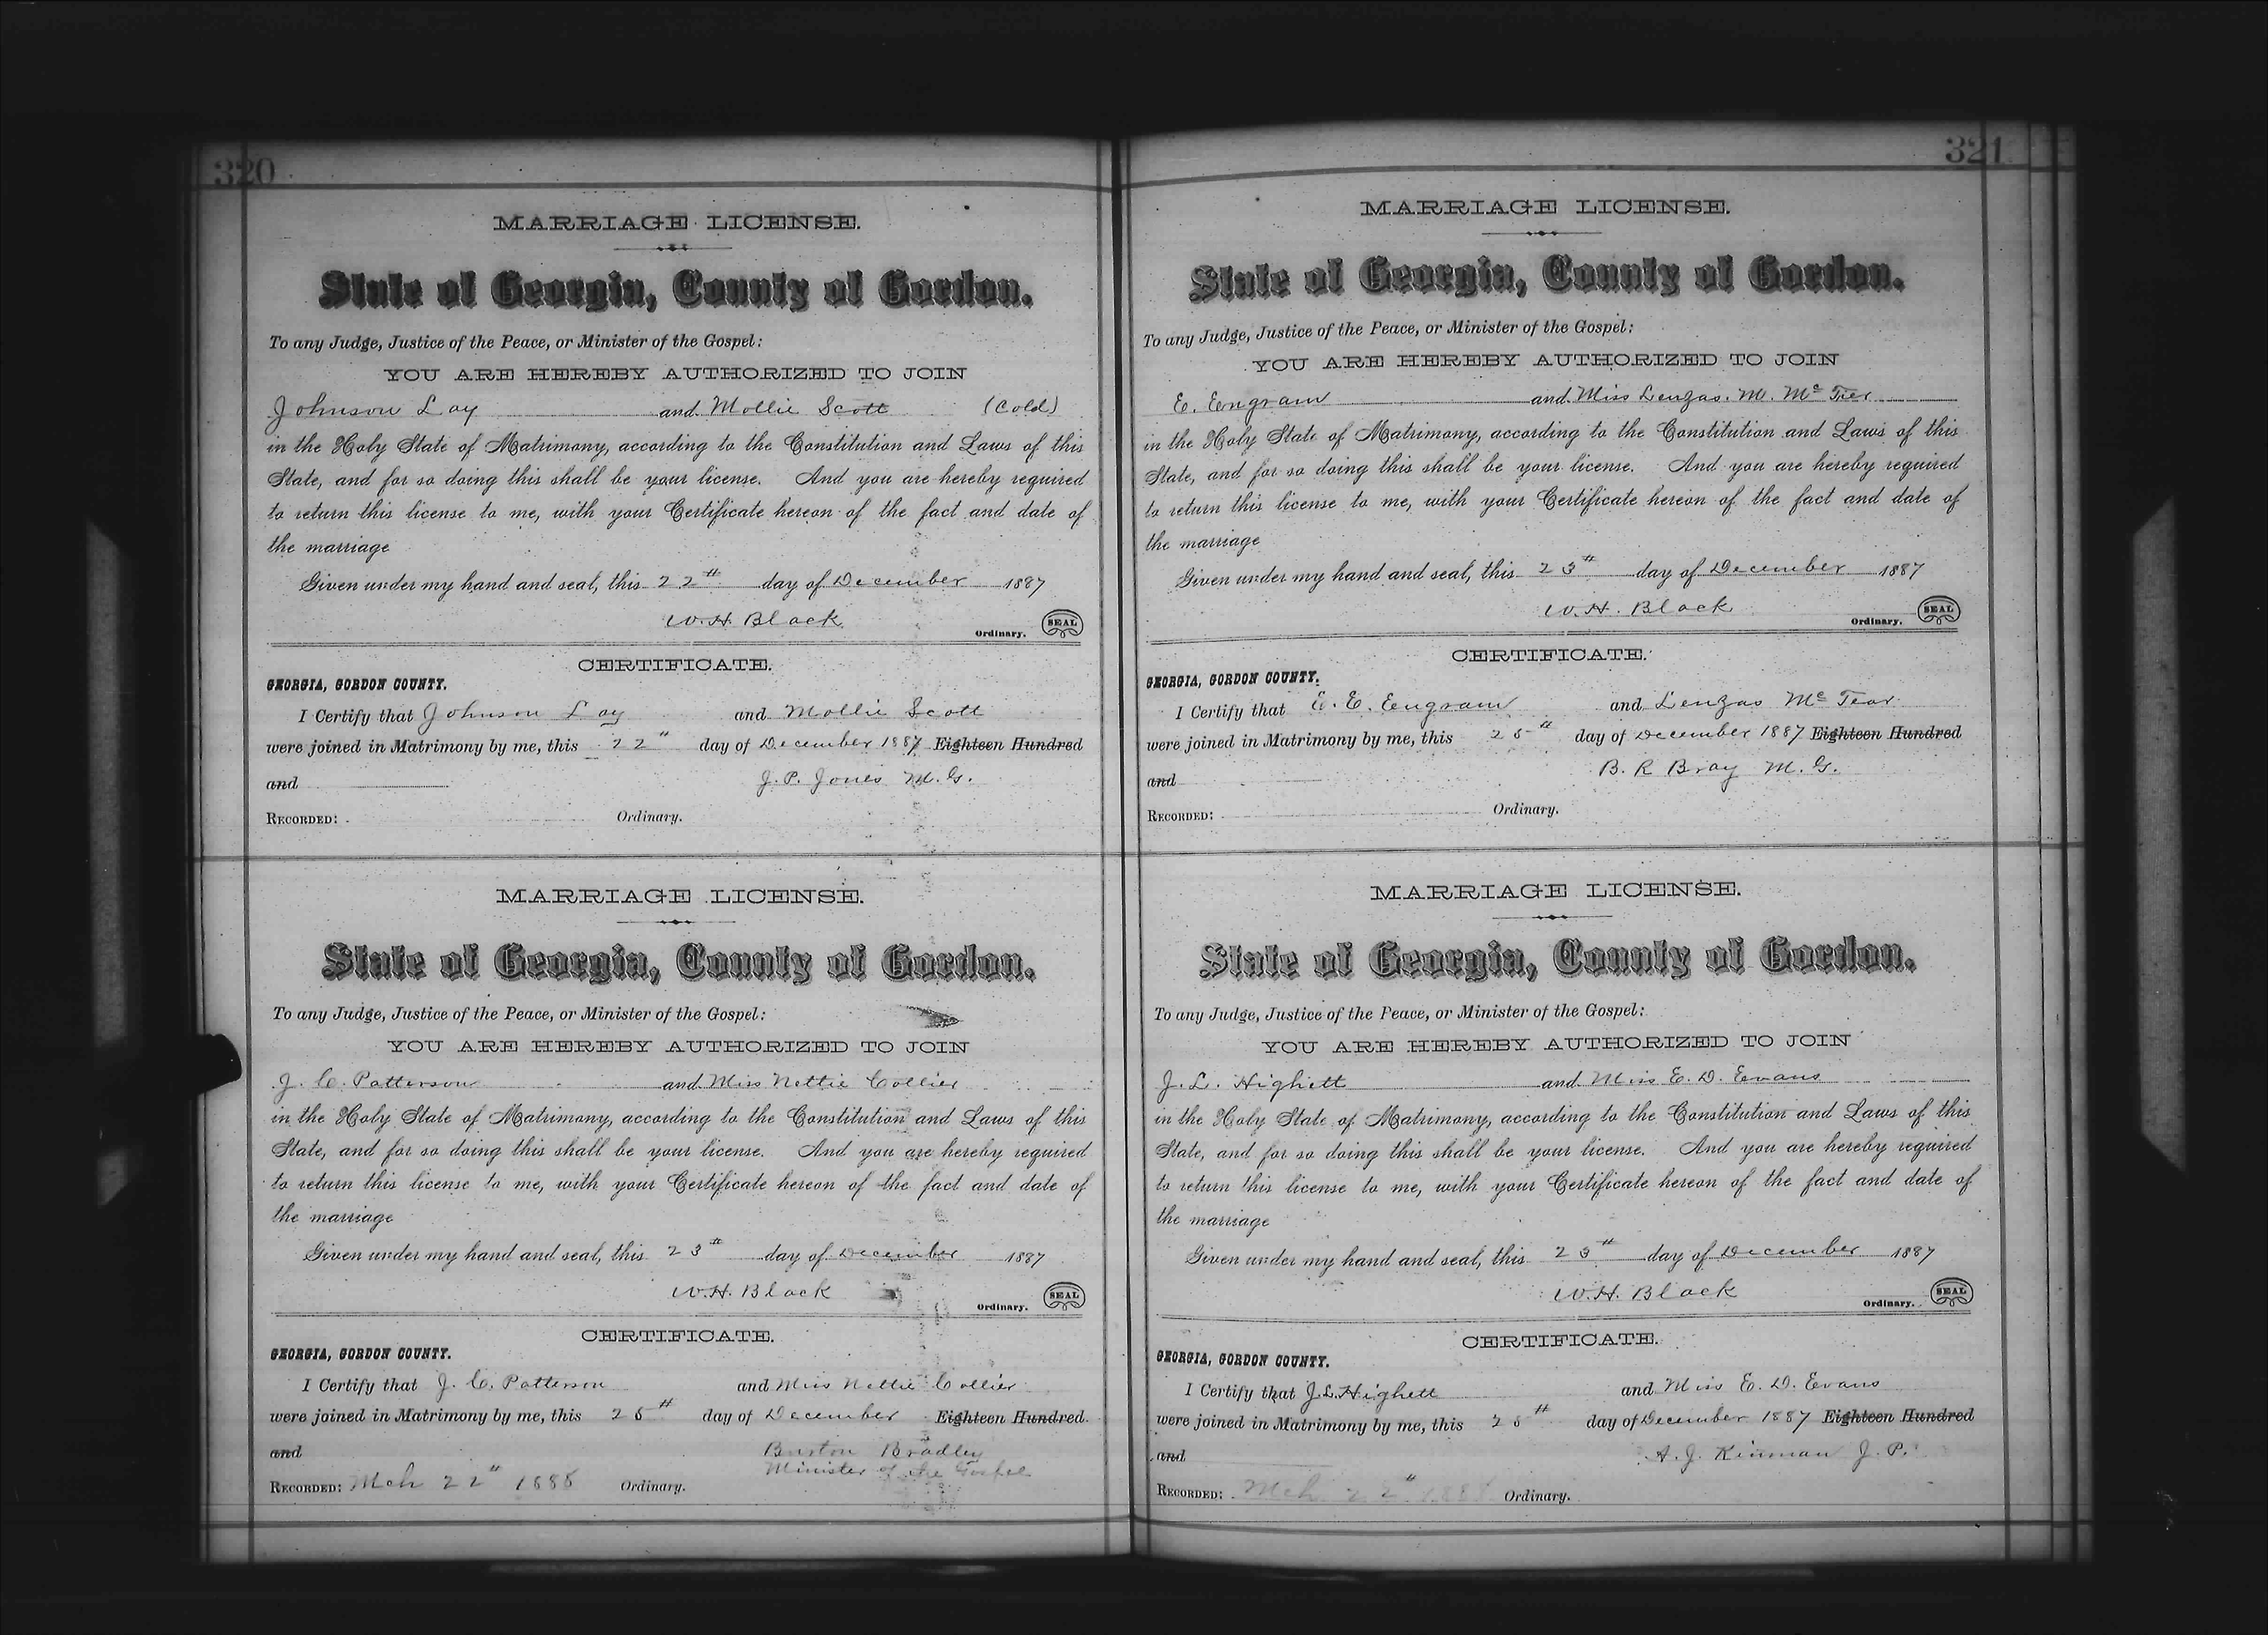 320
MARRIAGE LICENSE.
State of Georgia, County of Gordon.
To any Judge, Justice of the Peace, or Minister of the Gospel:
YOU ARE HEREBY AUTHORIZED TO JOIN
Johnson Lay and Mollie Scott (Cold)
in the Holy State of Matrimony, according to the Constitution and Laws of this
State, and for so doing this shall be your license. And you are hereby required
to return this license to me, with your Certificate hereon of the fact and date of
the marriage
Given under my hand and seal, this 22th day of December 1887
W.H. Black
Ordinary. SEAL
CERTIFICATE.
GEORGIA, GORDON COUNTY.
I Certify that Johnson Lay and Mollie Scott
were joined in Matrimony by me, this 22" day of December 1887 Eighteen Hundred
and J. P. Jones M. G.
RECORDED: Ordinary.
MARRIAGE LICENSE.
State of Georgia, County of Gordon.
To any Judge, Justice of the Peace, or Minister of the Gospel:
YOU ARE HEREBY AUTHORIZED TO JOIN
J. C. Patterson and Miss Nettie Collier
in the Holy State of Matrimony, according to the Constitution and Laws of this
State, and for so doing this shall be your license. And you are hereby required
to return this license to me, with your Certificate hereon of the fact and date of
the marriage
Given under my hand and seal, this 23th day of December 1887
W.H. Black
Ordinary. SEAL
CERTIFICATE.
GEORGIA, GORDON COUNTY.
I Certify that J. C. Patterson and Miss Nettie Collier
were joined in Matrimony by me, this 25th day of December Eighteen Hundred
and Burton Bradley
Minister of the Gospel
RECORDED: Mch 22" 1888 Ordinary.
321
MARRIAGE LICENSE.
State of Georgia, County of Gordon.
To any Judge, Justice of the Peace, or Minister of the Gospel:
YOU ARE HEREBY AUTHORIZED TO JOIN
E. Engram and Miss Lenzas. M. McTier
in the Holy State of Matrimony, according to the Constitution and Laws of this
State, and for so doing this shall be your license. And you are hereby required
to return this license to me, with your Certificate hereon of the fact and date of
the marriage
Given under my hand and seal, this 23th day of December 1887
W.H. Black
Ordinary. SEAL
CERTIFICATE.
GEORGIA, GORDON COUNTY.
I Certify that E. E. Engram and Lenzas McTear
were joined in Matrimony by me, this 25th day of December 1887 Eighteen Hundred
and B. R Bray M. G.
RECORDED: Ordinary.
MARRIAGE LICENSE.
State of Georgia, County of Gordon.
To any Judge, Justice of the Peace, or Minister of the Gospel:
YOU ARE HEREBY AUTHORIZED TO JOIN
J. L. Highett and Miss E. D. Evans
in the Holy State of Matrimony, according to the Constitution and Laws of this
State, and for so doing this shall be your license. And you are hereby required
to return this license to me, with your Certificate hereon of the fact and date of
the marriage
Given under my hand and seal, this 23th day of December 1887
W.H. Black
Ordinary. SEAL
CERTIFICATE.
GEORGIA, GORDON COUNTY.
I Certify that J.L. Highett and Miss E. D. Evans
were joined in Matrimony by me, this 25th day of December 1887 Eighteen Hundred
and A. J. Kinman J. P.
RECORDED: Mch 22" 1888 Ordinary.